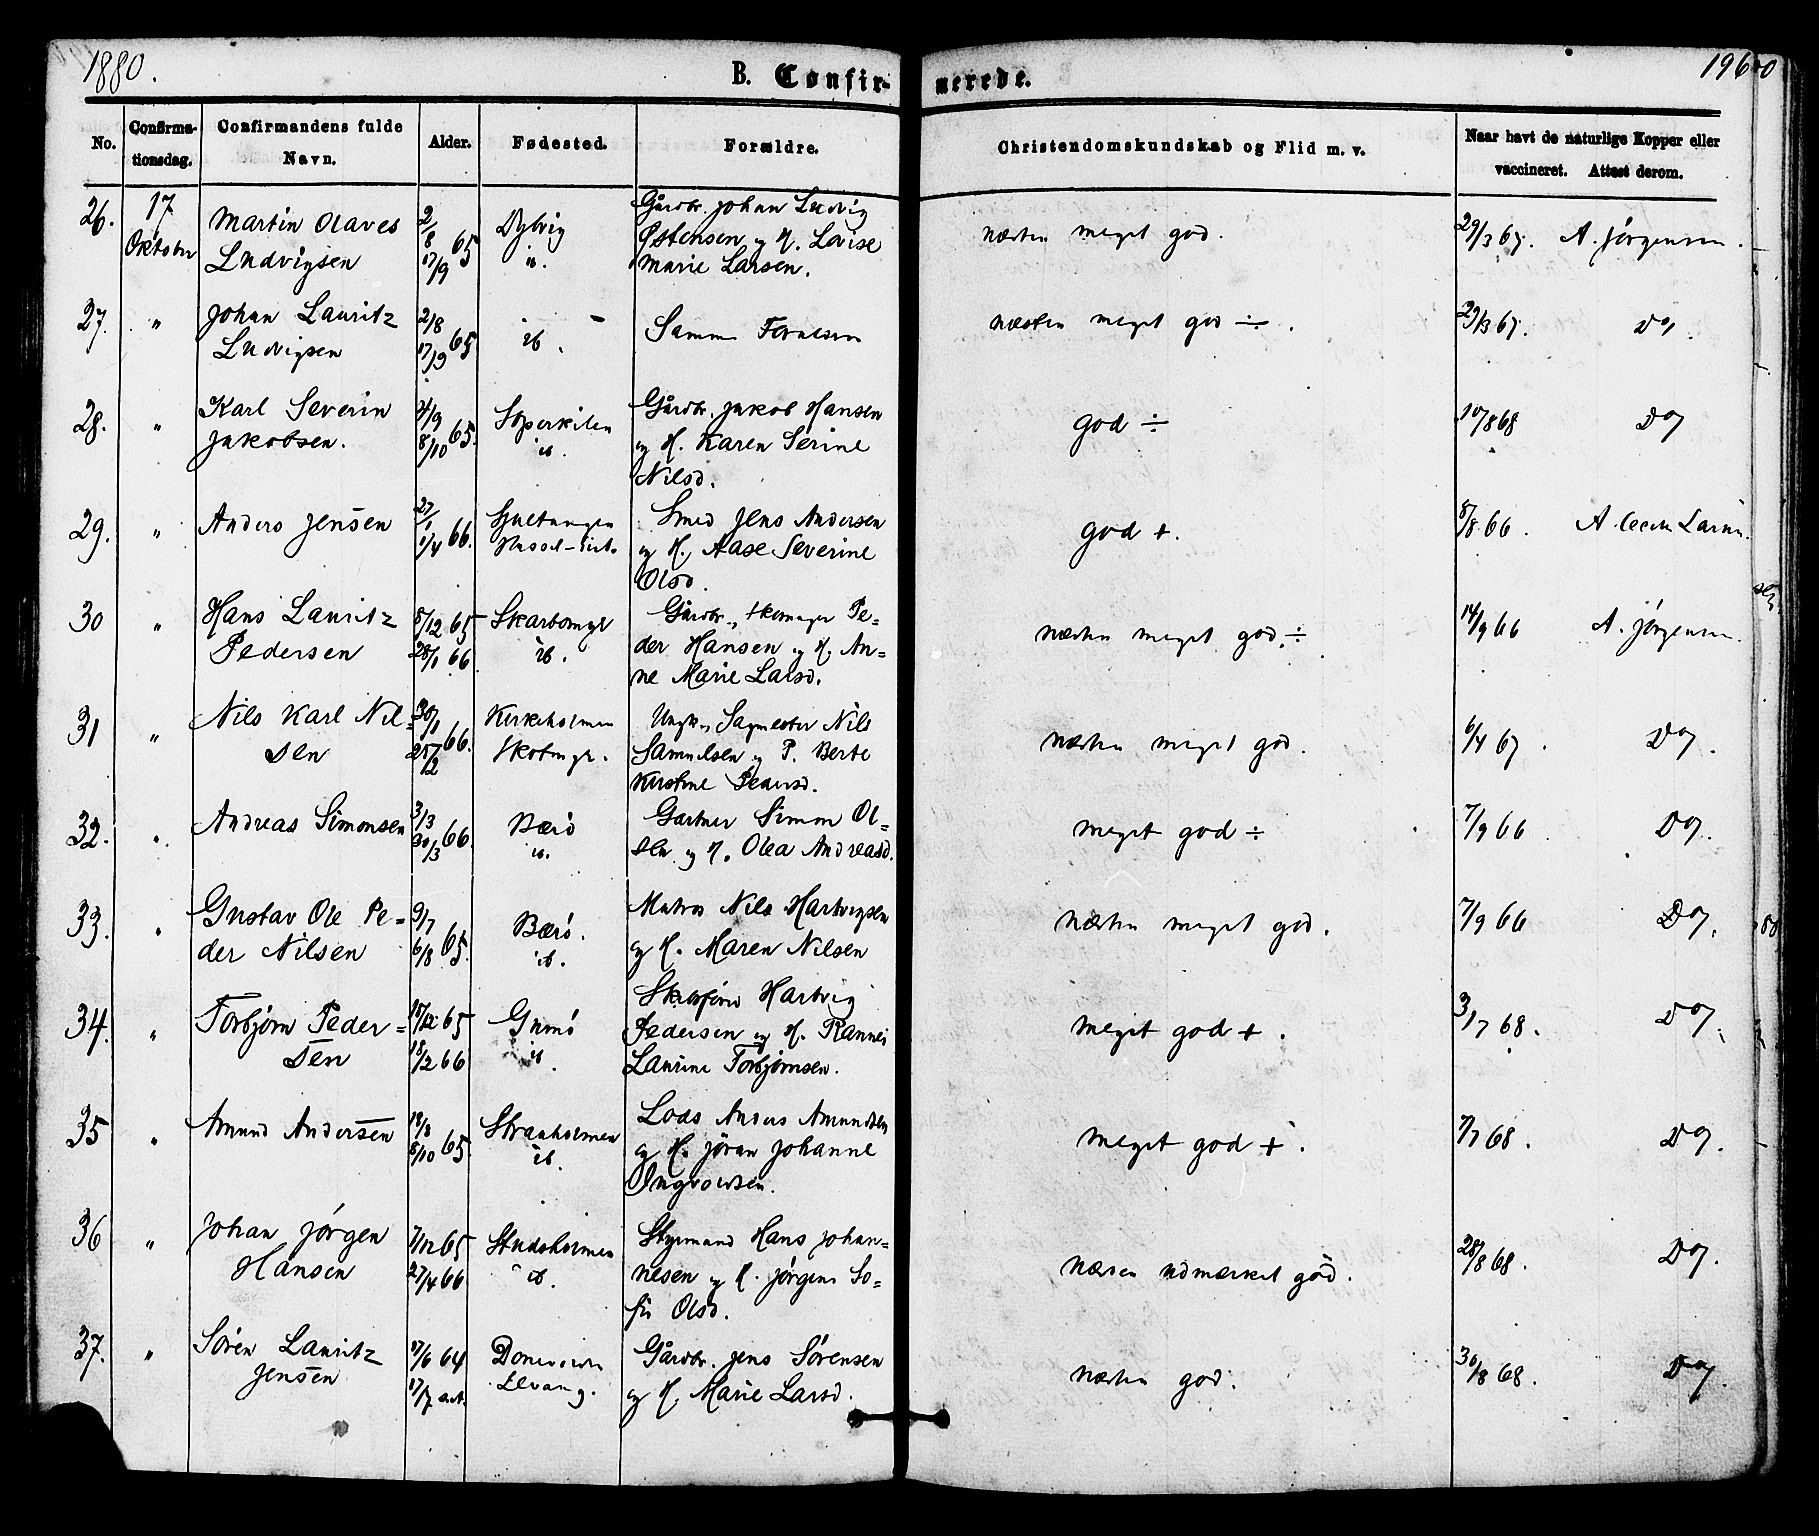 1880.
B. Confir-
merede.
196
No.
Confirma-
tionsdag.
Confirmandens fulde
Navn.
Alder.
Fødested.
Forældre.
Christendomskundskab og Flid m. v.
Naar havt de naturlige Kopper eller
vaccineret. Attest derom.
26.
17
Oktober
Martin Olaves
Ludvigsen
2/8 65
17/9
Dybvig
ib.
Gårdbr. Johan Ludvig
Østensen og H. Lovise
Marie Larsen.
næsten meget god.
29/3 67. A. Jörgensen.
27. "
Johan Lauritz
Ludvigsen
2/8 65
17/9
ib.
Samme Forældre
næsten meget god ÷.
29/3 67. Do.
28. "
Karl Severin
Jakobsen.
4/9 65.
8/10
ib.
Gårdbr. Jakob Hansen
og H. Karen Serine
Nilsd.
god ÷
10/8 68 Do
29. "
Anders Jensen
27/1 66.
1/4
Smed Jens Andersen
og H. Aase Severine
Olsd.
god +.
8/8 66. A.
30 "
Hans Lauritz
Pedersen
8/12 65
28/1 66.
ib.
Gårdbr., Pe=
der Hansen og H. An=
ne Marie Larsd.
næsten meget god ÷
14/9 66 A. Jörgensen.
31 "
Nils Karl Nil=
sen
30/1 66.
25/12
Kirkeholmen
Ungk., Nils
Samuelsen og P. Berte
Kirstine Pedersd.
næsten meget god.
6/4 67. Do.
32. "
Andreas Simonsen
3/3 66.
30/3
Barö
ib.
Gartner Simon Ol=
sen og H. Olea Andreasd.
meget god ÷
7/9 66 Do.
33. "
Gustav Ole Pe-
der Nilsen
9/7 65.
6/8
Barö.
ib.
Matros Nils Hartvigsen
og H. Maren Nilsen
næsten meget god.
7/9 66 Do.
34. "
Torbjörn Peder=
sen
15/12 65
18/2 66
ib.
Hartvig
Pedersen og H.
Laurine Torbjörnsen.
meget god +.
3/7 68. Do.
35 "
Amund Andersen
18/8 65.
8/10
ib.
Lods Anders Amundsen
og H. Jöran Johanne
meget god +.
7/7 68. Do.
36 "
Johan Jörgen
Hansen
7/12 65
27/4 66
Studsholmen
ib.
Styrmand Hans Johan=
nesen og H. Jörgine So=
fie Olsd.
næsten udmærket god.
28/8 68. Do.
37. "
Sören Lauritz
Jensen
17/6 64
17/7
Gårdbr. Jens Sörensen
og H. Marie Larsd.
næsten god.
30/8 68. Do.